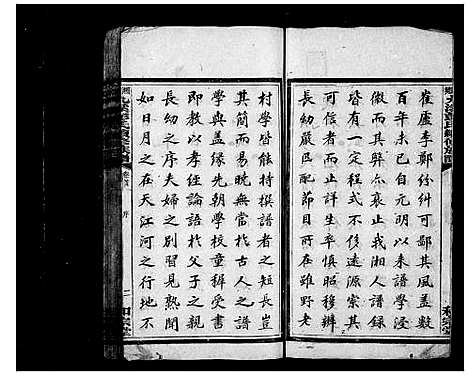 崔盧李鄭紛糾可鄙其風蓋數
百年未已自元明以來譜學浸
微而其弊亦衰止我湘人譜錄
皆有一定程式不遠源宗其
可信者而止詳生卒慎昭穆別
長幼嚴匹配節目所在雖野老
村學皆能特撰譜者之短長豈
其簡而易曉無當於古人之譜
學與蓋緣先朝學校里塾受書
即教以孝經論語於父子之親
長幼之序夫婦之別習見熟聞
如日月之在天江河之行地不
序
二